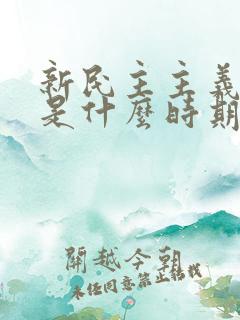 新民主主義
是什麼時期
開越今朝
未經同意禁止轉載